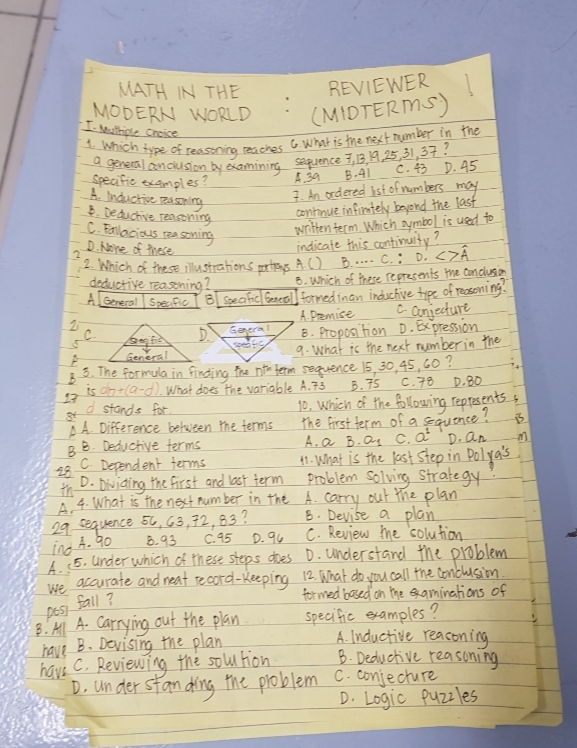 MATH IN THE
MODERN WORLD
:
REVIEWER
(MIDTERMS)
I. Multiple Choice
1. Which type of reasoning reaches
a general conclusion by examining
specific examples?
A. Inductive reasoning
B. Deductive reasoning
C. Fallacious reasoning
D. None of these
2. Which of these illustrations portrays
deductive reasoning?
A General Specific B Specific General
C. Specific General
D. General Specific
3. The formula in finding the nth term
is an+(a-d). What does the variable
d stands for.
A. Difference between the terms
B. Deductive terms
C. Dependent terms
D. Dividing the first and last term
4. What is the next number in the
sequence 56, 63, 72, 83?
A. 90 B. 93 C. 95 D. 96
5. Under which of these steps does
accurate and neat record-keeping
fall?
A. Carrying out the plan
B. Devising the plan
C. Reviewing the solution
D. Understanding the problem
6. What is the next number in the
sequence 7, 13, 19, 25, 31, 37?
A. 39 B. 41 C. 43 D. 45
7. An ordered list of numbers may
continue infinitely beyond the last
written term. Which symbol is used to
indicate this continuity?
A ( ) B. .... C. : D. < > Â
8. Which of these represents the conclusion
formed in an inductive type of reasoning?
A. Premise C. Conjecture
B. Proposition D. Expression
9. What is the next number in the
sequence 15, 30, 45, 60?
A. 73 B. 75 C. 78 D. 80
10. Which of the following represents
the first term of a sequence?
A. a B. a1 C. a¹ D. an
11. What is the last step in Polya's
Problem Solving Strategy?
A. Carry out the plan
B. Devise a plan
C. Review the solution
D. Understand the problem
12. What do you call the conclusion
formed based on the examinations of
specific examples?
A. Inductive reasoning
B. Deductive reasoning
C. Conjecture
D. Logic Puzzles